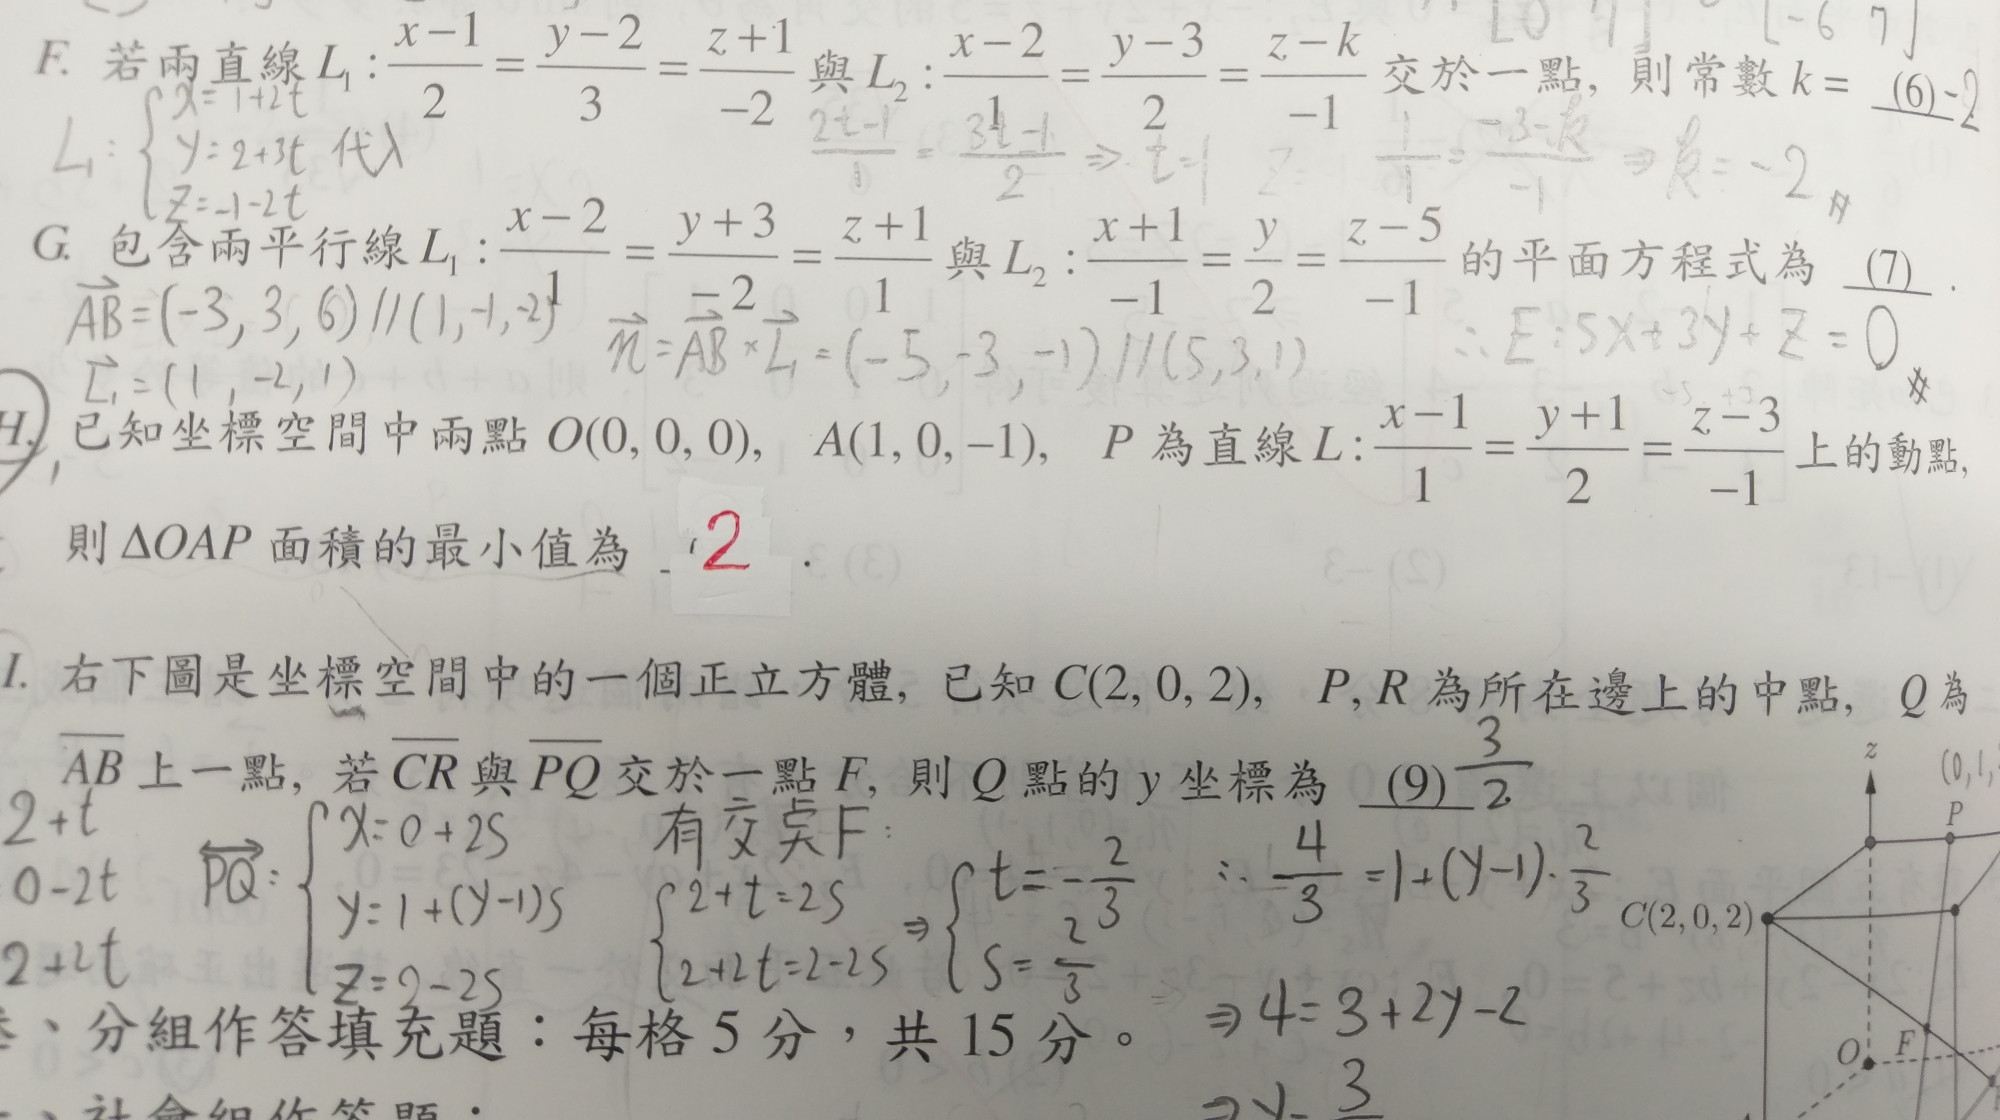 F. 若兩直線 L₁ : (x−1)/2 = (y−2)/3 = (z+1)/−2 與 L₂ : (x−2)/1 = (y−3)/2 = (z−k)/−1 交於一點, 則常數 k = (6) -2
L₁ : { x=1+2t
y=2+3t 代入
z=-1-2t
(2t-1)/1 = (3t-1)/2 ⇒ t=1 1/1 = (-3-k)/-1 ⇒ k=-2 #
G. 包含兩平行線 L₁ : (x−2)/1 = (y+3)/−2 = (z+1)/1 與 L₂ : (x+1)/−1 = y/2 = (z−5)/−1 的平面方程式為 (7) .
AB=(-3, 3, 6)//(1,-1,-2) n=AB×L₁=(-5,-3,-1)//(5,3,1) ∴ E:5x+3y+z=0 #
L₁=(1,-2,1)
H. 已知坐標空間中兩點 O(0, 0, 0), A(1, 0, −1), P 為直線 L : (x−1)/1 = (y+1)/2 = (z−3)/−1 上的動點,
則 ΔOAP 面積的最小值為 2 .
I. 右下圖是坐標空間中的一個正立方體, 已知 C(2, 0, 2), P, R 為所在邊上的中點, Q 為
AB 上一點, 若 CR 與 PQ 交於一點 F, 則 Q 點的 y 坐標為 (9) 3/2
2+t
0-2t
2+2t
PQ: { x=0+2s
y=1+(y-1)s
z=2-2s
有交点F:
{ 2+t=2s
2+2t=2-2s
⇒ { t=-2/3
s=2/3
∴ 4/3 =1+(y-1)·2/3
⇒ 4=3+2y-2
⇒ y=3
z
(0,1,
P
C(2, 0, 2)
O
F
、分組作答填充題：每格 5 分，共 15 分。
、社會組作答題：